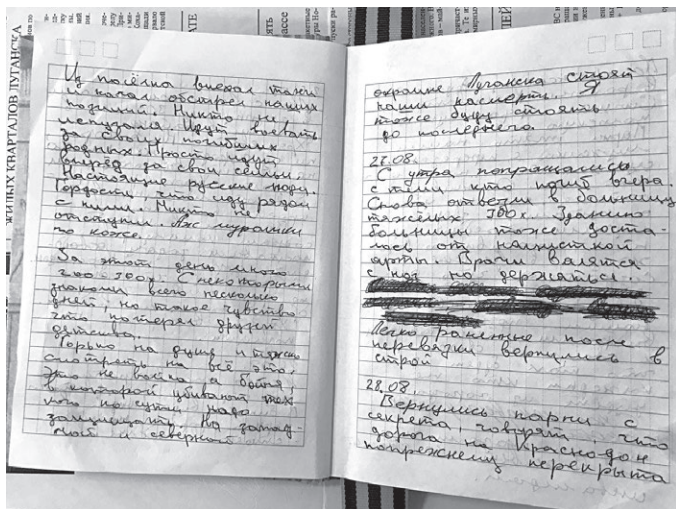 ЖИЛЫХ КВАРТАЛОВ ЛУГАНСКА
Из посёлка выехал танк
и начал обстрел наших
позиций. Никто не
испугался. Идут воевать
за своих погибших
родных. Просто идут
вперёд за свои семьи.
Настоящие русские люди.
Гордость, что иду рядом
с ними. Никто не
отступил. Аж мурашки
по коже.
За этот день много
200 300х. С некоторыми
знакомы всего несколько
дней, но такое чувство
что потерял друзей
детства.
Горько на душе и тяжко
смотреть на всё это,
Это не война а бойня,
в которой убивают тех
кого по сути надо
защищать. На запад-
ной и северной
окраине Луганска стоят
наши насмерть. Я
тоже буду стоять
до последнего.
27.08.
С утра попращались
с теми кто погиб вчера.
Снова отвезли в больницу
тяжёлых 300х. Зданию
больницы тоже доста-
лось от нацистской
арты. Врачи валятся
с ног но держаться.
Легко раненные после
перевязки вернулись в
строй
28.08.
Вернулись парни с
секрета, говорят, что
дорога на Краснодон
попрежнему перекрыта